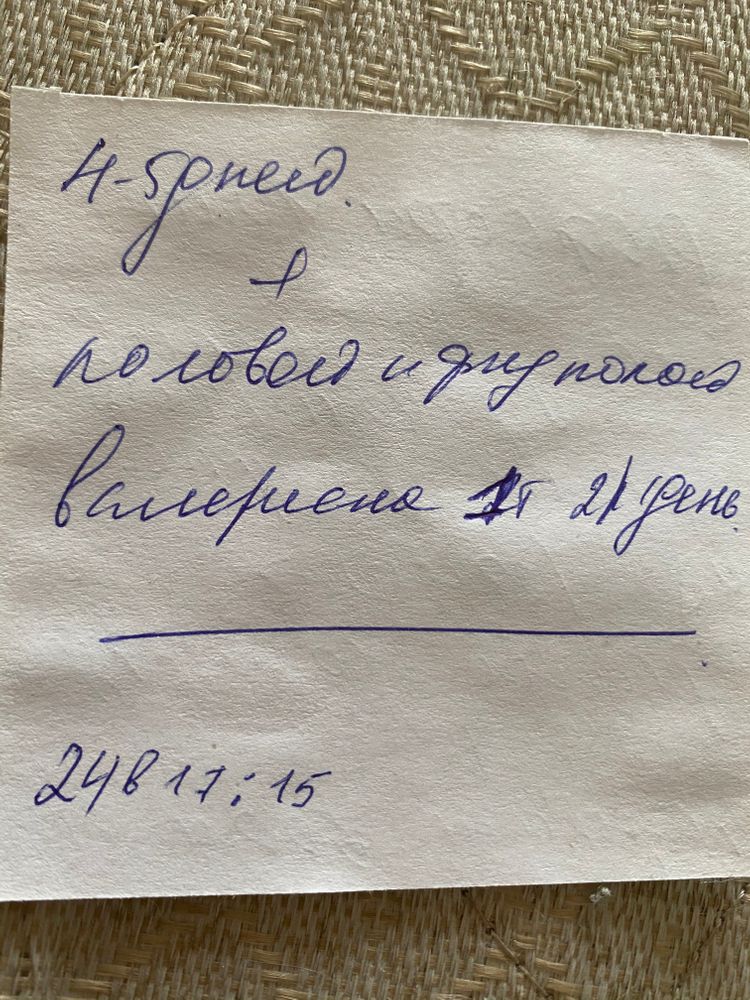 4-5дней.
+
половой и физ покой
валериана 1т 2/день.
24 в 17:15